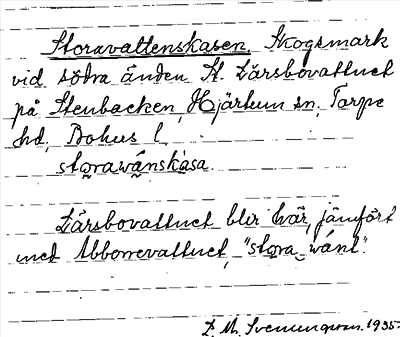 Storavattenskasen, Skogsmark
vid södra änden St. Lärsbovattnet
på Stenbacken, Hjärtum sn, Torpe
hd, Bohus l.
storawänskåsa.
Lärsbovattnet blir här, jämfört
med Abborrevattnet, "stora wänt".
1935.